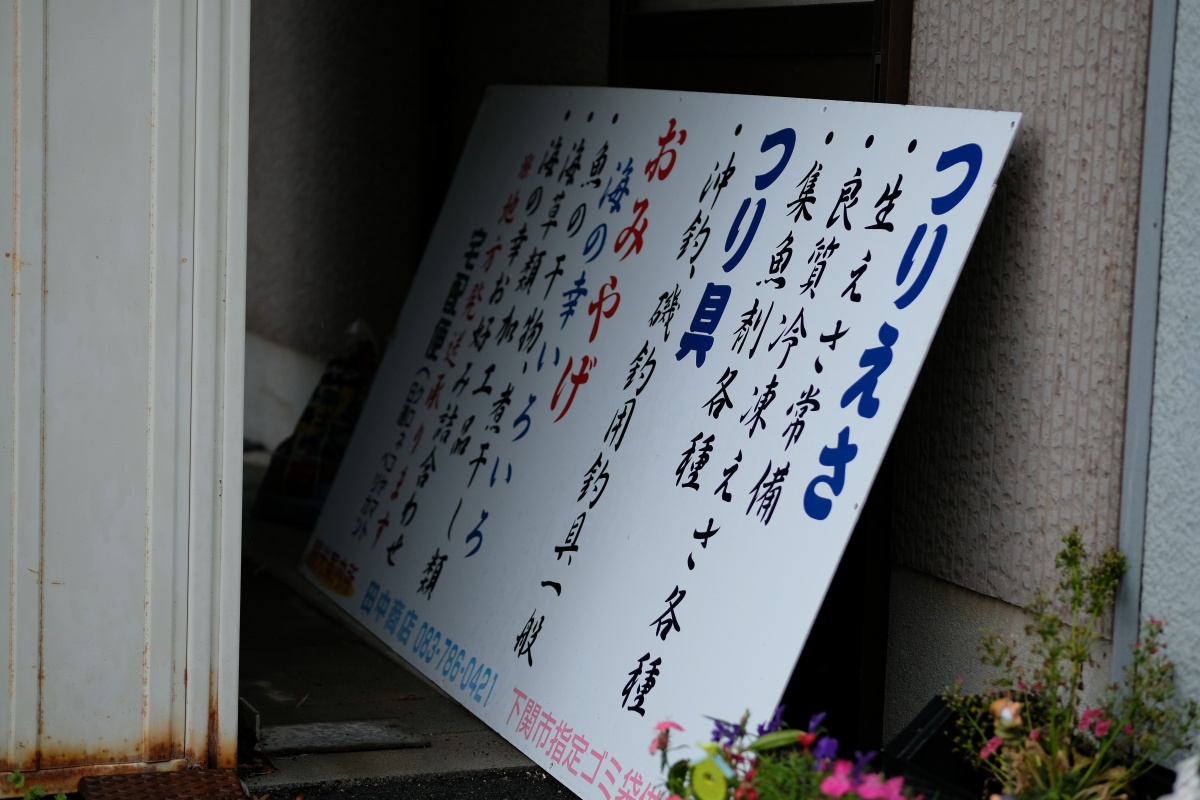 つりえさ
・生えさ常備
・良質冷凍えさ各種
・集魚剤各種
つり具
・沖釣、磯釣用釣具一般
おみやげ
海の幸いろいろ
・魚の干物、煮干し類
・海草類加工品
・海の幸お好み詰合わせ
地方発送承ります
宅配便
田中商店 083-786-0421
下関市指定ゴミ袋